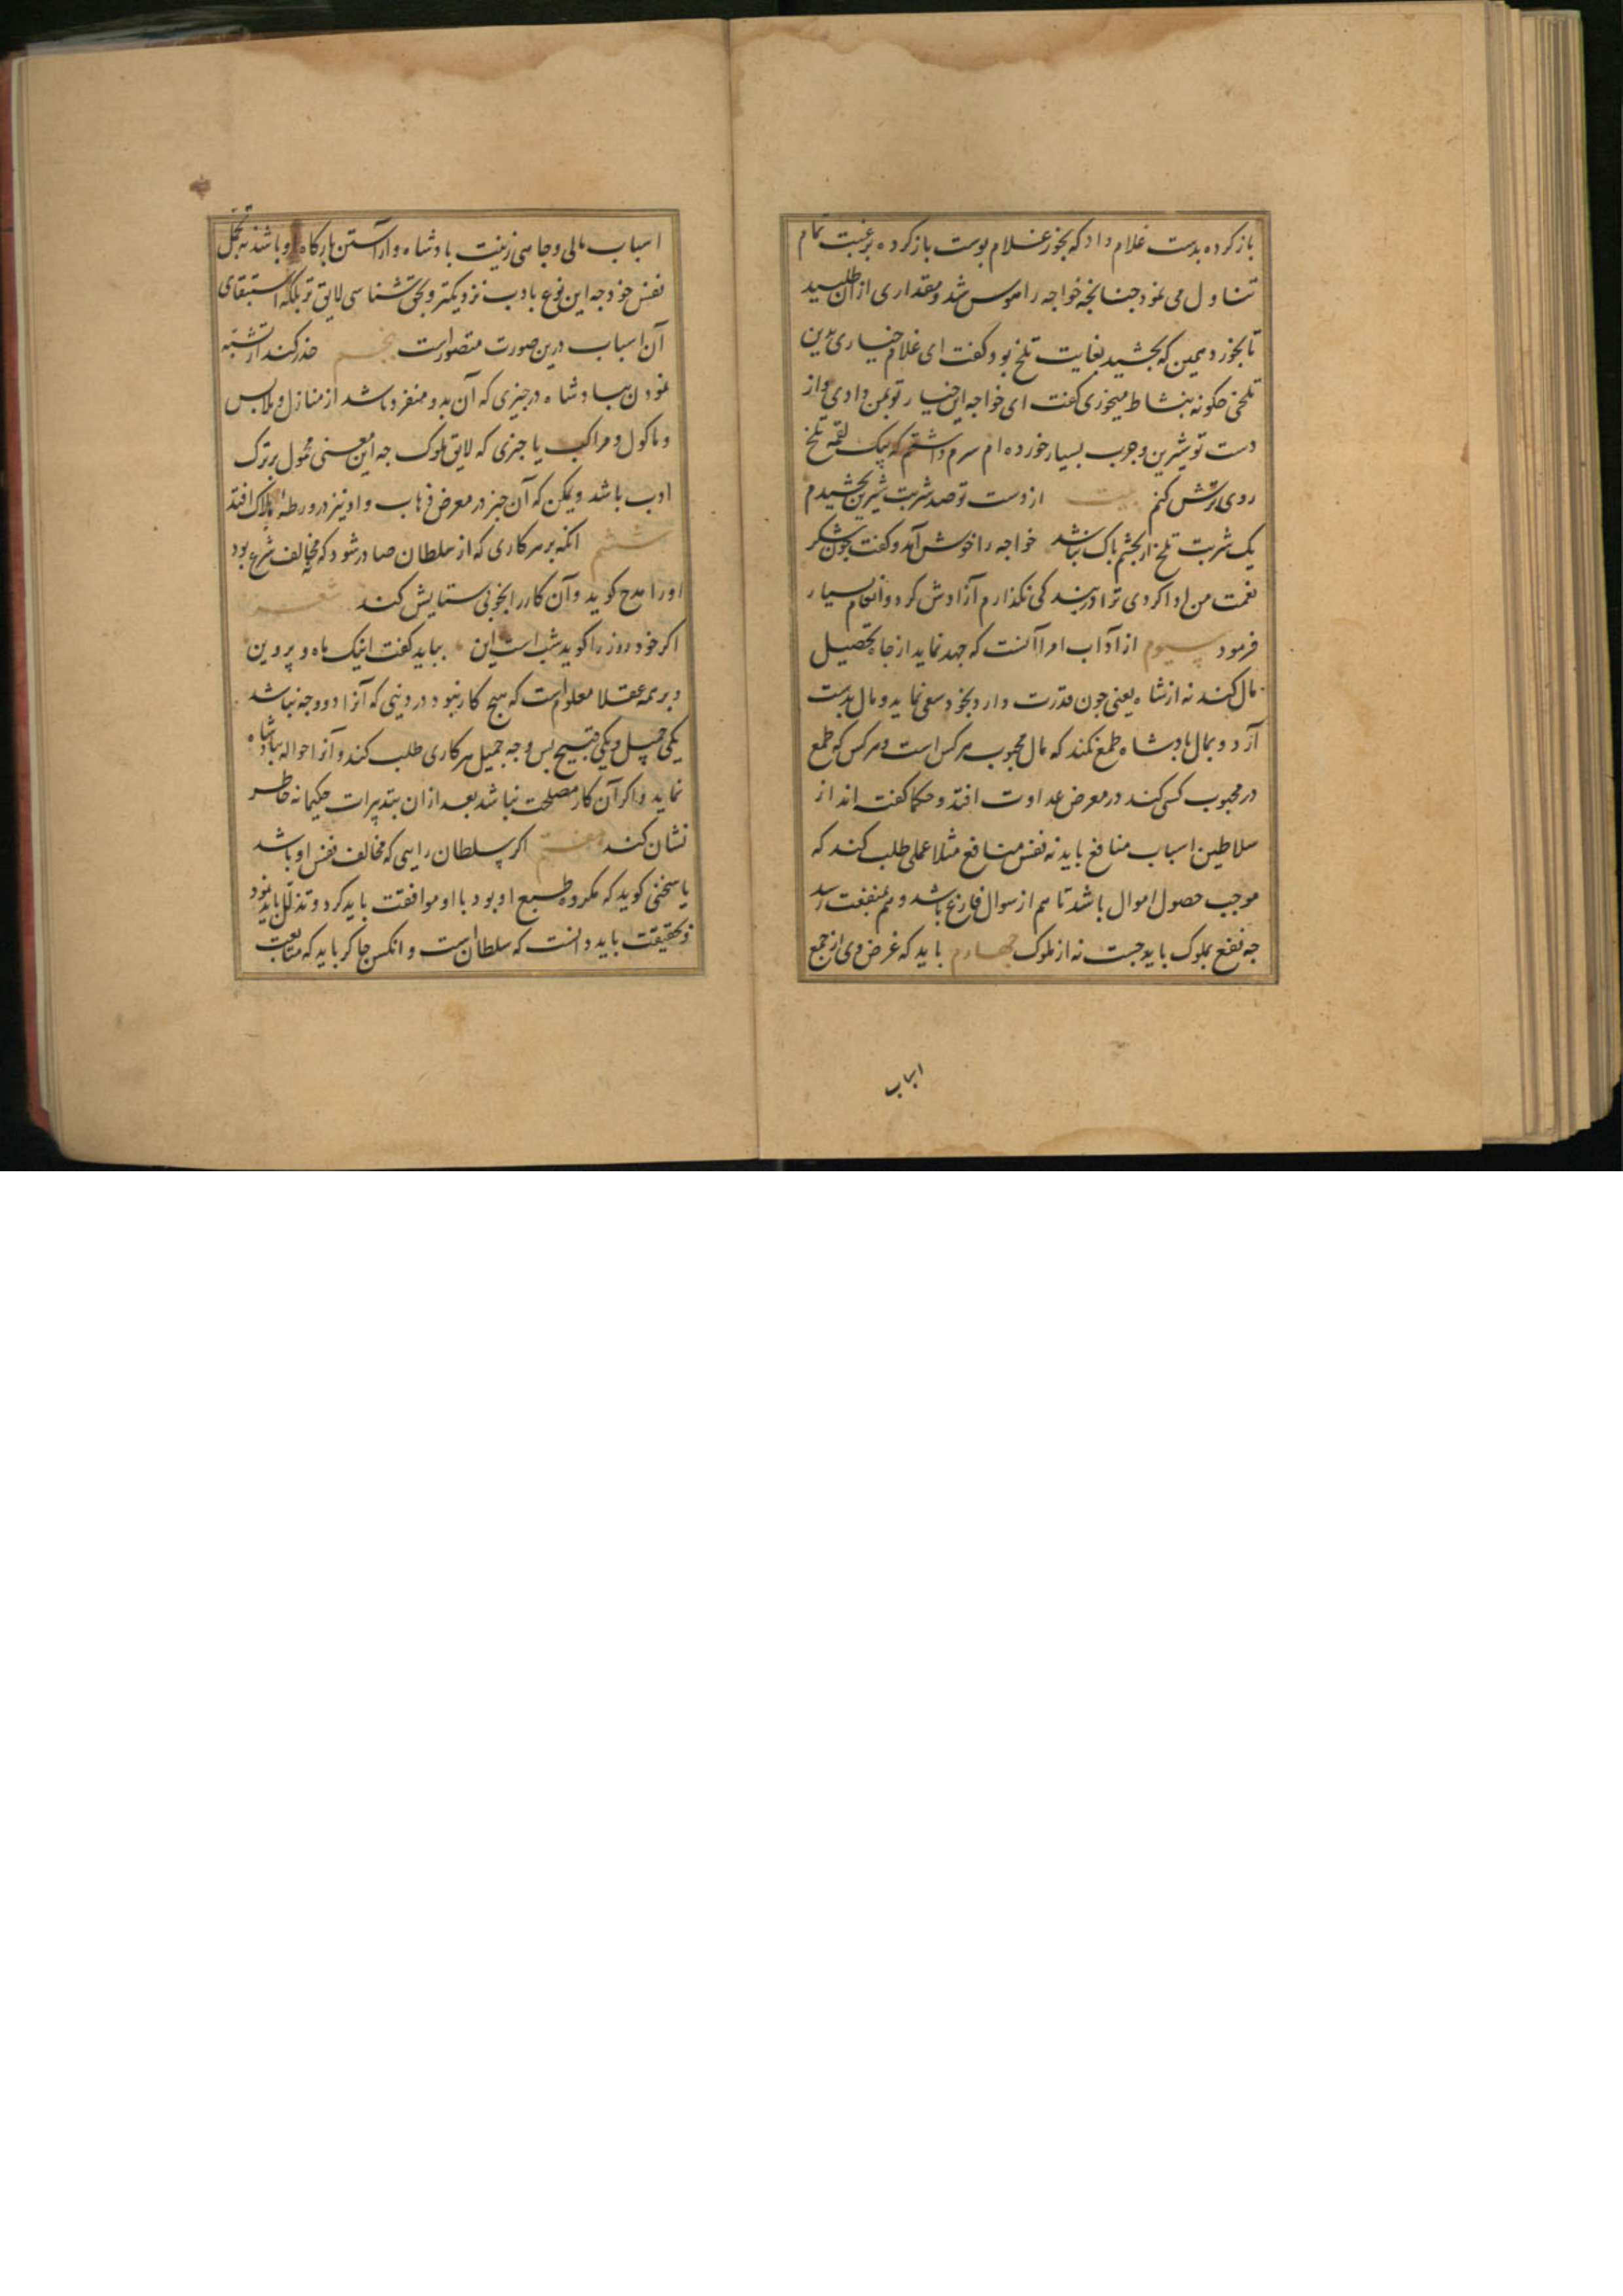 باز کرده بدست غلام داد که بخور غلام پوست باز کرده برغبت تمام
تناول می نمود چنانچه خواجه را هوس شد و مقداری از ان طلبید
تا بخورد همین که بچشید بغایت تلخ بود گفت ای غلام خیاری بدین
تلخی چکونه بنشاط میخوری گفت ای خواجه این خیار تو بمن دادی و از
دست تو شیرین و چرب بسیار خورده ام شرم داشتم که بیک لقمه تلخ
روی ترش کنم بیت از دست تو صد شربت شیرین بچشیدم
یک شربت تلخ ار بچشم باک نباشد خواجه را خوش آمد و گفت چون شکر
نعمت من ادا کردی ترا در بند کی نگذارم آزادش کرد و انعام بسیار
فرمود سیوم از آداب امرا آنست که جهد نماید از جاه تحصیل
مال کند نه از شاه یعنی چون قدرت دارد بخود سعی نماید و مال بدست
آرد و بمال پادشاه طمع نکند که مال محبوب هر کس است و هر کس که طمع
در محبوب کسی کند در معرض عداوت افتد و حکما گفته اند از
سلاطین اسباب منافع باید نه نفس منافع مثلا عملی طلب کند که
موجب حصول اموال باشد تا هم از سوال فارغ باشد و هم بمنفعت رسد
چه نفع بملوک باید جست نه از ملوک چهارم باید که غرض وی از جمع
اسباب
اسباب مالی و جاهی زینت پادشاه و آراستن بارکاه او باشد نه تجمل
نفس خود چه این نوع بادب نزدیکتر و بحق شناسی لایق تر بلکه استبقای
آن اسباب درین صورت متصور است پنجم حذر کند از تشبه
نمودن بپادشاه در چیزی که آن بدو منفرد باشد از منازل و ملابس
و ماکول و مراکب یا چیزی که لایق ملوک چه این معنی محمول بر ترک
ادب باشد و یمکن که آن چیز در معرض ذهاب و او نیز در ورطه هلاک افتد
ششم انکه بر هر کاری که از سلطان صادر شود که نه مخالف شرع بود
او را مدح کوید و آن کار را بخوبی ستایش کند شعر
اکر خود روز را کوید شب است این بباید کفت اینک ماه و پروین
و بر همه عقلا معلوم است که هیچ کار نبود در دینی که آنرا دو وجه نباشد
یکی جمیل و یکی قبیح پس وجه جمیل هر کاری طلب کند و آنرا حواله بپادشاه
نماید و اکر آن کار مصلحت نباشد بعد از ان بتدبیرات حکیمانه خاطر
نشان کند هفتم اکر سلطان رایی که مخالف نفس او باشد
یا سخنی کوید که مکروه طبع او بود با او موافقت باید کرد و تذلل باید نمود
و بحقیقت باید دانست که سلطان است و انکس چاکر باید که متابعت